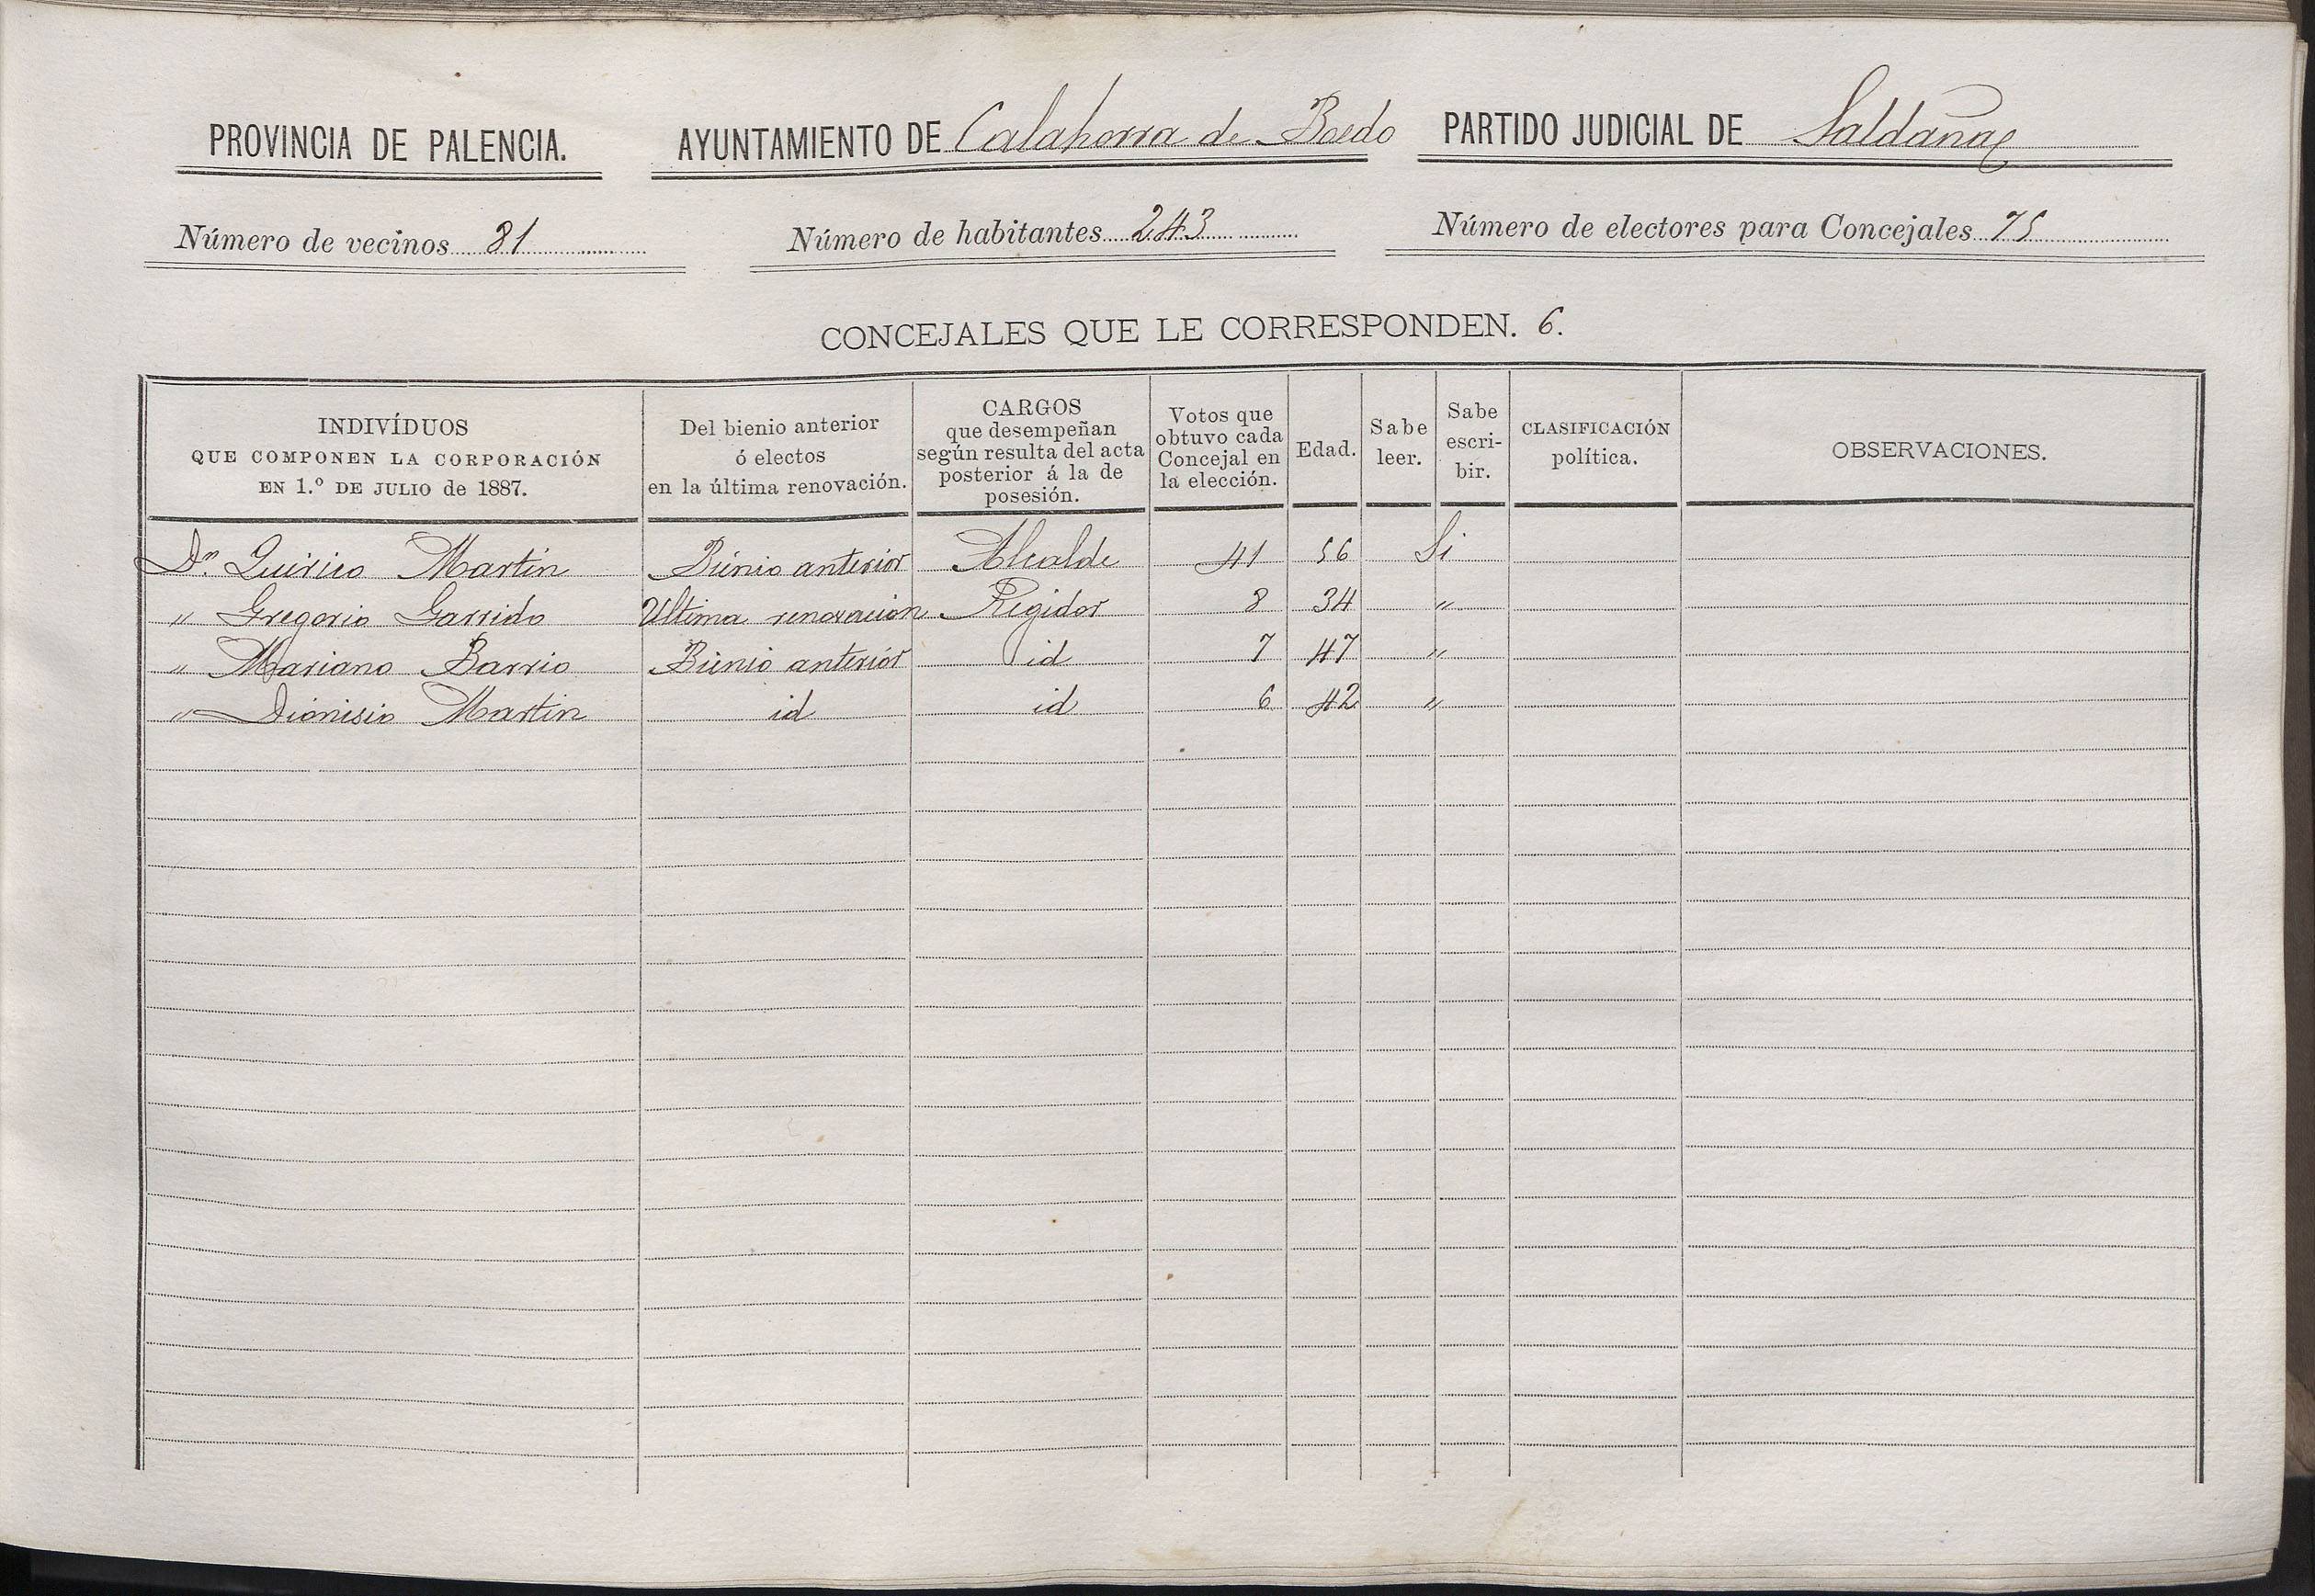 PROVINCIA DE PALENCIA. AYUNTAMIENTO DE Calahorra de Boedo PARTIDO JUDICIAL DE Saldaña
Número de vecinos 81 Número de habitantes 243 Número de electores para Concejales 75
CONCEJALES QUE LE CORRESPONDEN. 6.
INDIVÍDUOS
QUE COMPONEN LA CORPORACIÓN
EN 1.º DE JULIO de 1887.
Del bienio anterior
ó electos
en la última renovación.
CARGOS
que desempeñan
según resulta del acta
posterior á la de
posesión.
Votos que
obtuvo cada
Concejal en
la elección.
Edad.
Sabe
leer.
Sabe
escri-
bir.
CLASIFICACIÓN
política.
OBSERVACIONES.
Dn. Quirico Martin Bienio anterior Alcalde 41 56 Si
" Gregorio Garrido Ultima renovacion Regidor 8 34 "
" Mariano Barrio Bienio anterior id 7 47 "
" Dionisio Martin id id 6 42 "